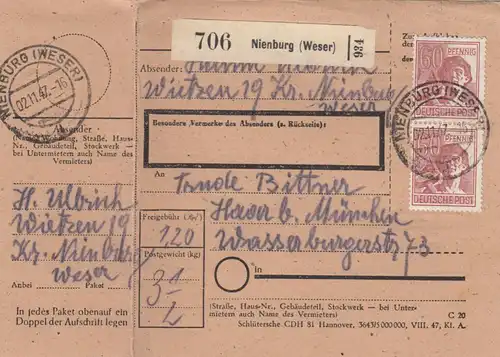 706 Nienburg (Weser) 934
NIENBURG (WESER)
02.11.47.-16
a
60 PFENNIG
DEUTSCHE POST
NIENBURG (WESER)
02.11.47
PFENNIG
DEUTSCHE POST
Absender:
Wietzen 19 Kr. Nienburg
Weser
Besondere Vermerke des Absenders (s. Rückseite):
Absender
Wohnung, Straße, Haus-
Nr., Gebäudeteil, Stockwerk —
bei Untermietern auch Name des
Vermieters)
H. Ulbrich
Wietzen 19
Kr. Nienburg
Weser
Anbei Paket
In jedes Paket obenauf ein
Doppel der Aufschrift legen
An
Bittner
Haar b. München
Wasserburgerstr. 73
Freigebühr
1,20
Postgewicht (kg)
3 1/2
in
(Straße, Haus-Nr., Gebäudeteil, Stockwerk — bei Unter-
mietern auch Name des Vermieters)
C 20
Schlütersche CDH 81 Hannover, VIII. 47, Kl. A.